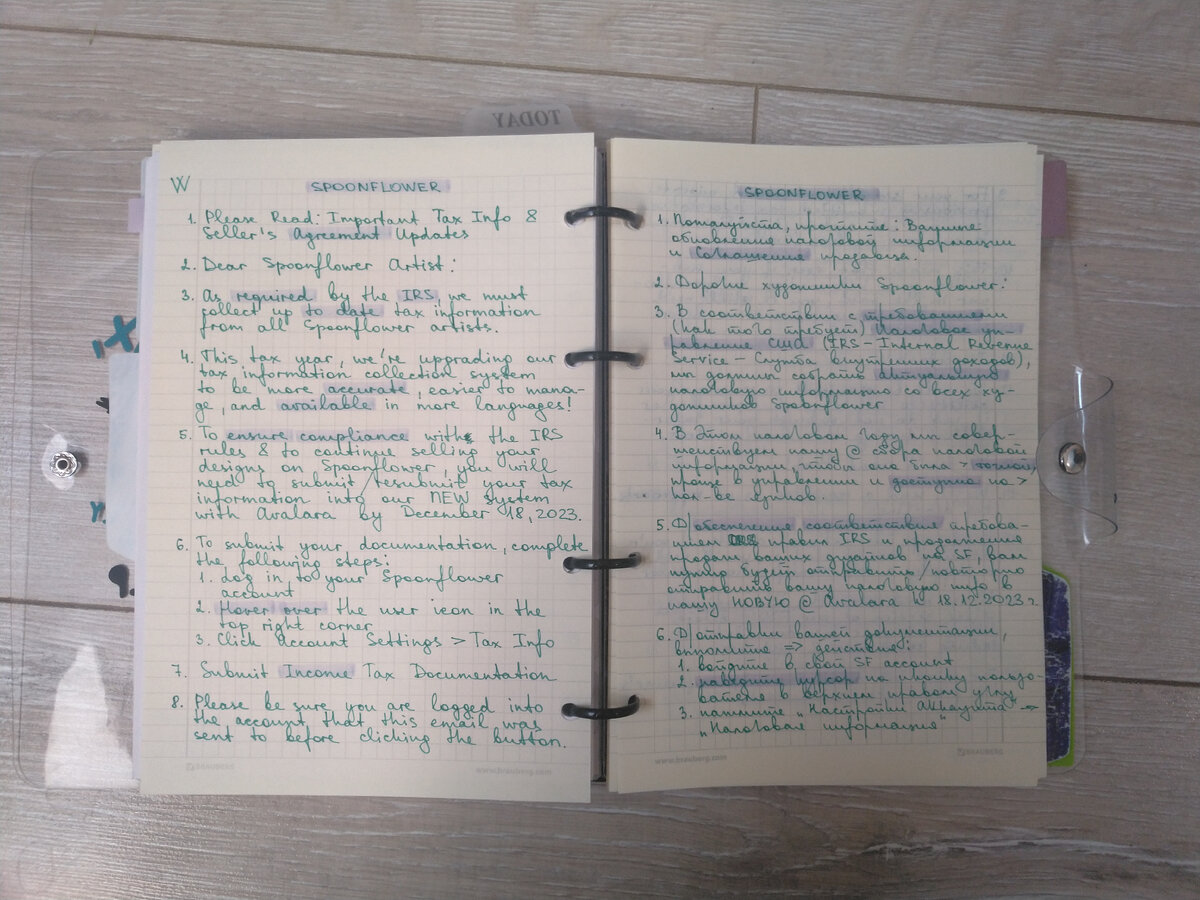 TODAY
W
SPOONFLOWER
1. Please Read: Important Tax Info &
Seller's Agreement Updates
2. Dear Spoonflower Artist:
3. As required by the IRS, we must
collect up to date tax information
from all Spoonflower artists.
4. This tax year, we're upgrading our
tax information collection system
to be more accurate, easier to mana-
ge, and available in more languages!
5. To ensure compliance with the IRS
rules & to continue selling your
designs on Spoonflower, you will
need to submit/resubmit your tax
information into our NEW system
with Avalara by December 18, 2023.
6. To submit your documentation, complete
the following steps:
1. Log in to your Spoonflower
account
2. Hover over the user icon in the
top right corner
3. Click Account Settings > Tax Info
7. Submit Income Tax Documentation
8. Please be sure you are logged into
the account that this email was
sent to before clicking the button.
BRAUBERG
www.brauberg.com
SPOONFLOWER
1. Пожалуйста, прочтите: Важные
обновления налоговой информации
и Соглашения продавца.
2. Дорогие художники Spoonflower:
3. В соответствии с требованиями
(как того требует) Налоговое уп-
равление США (IRS - Internal Revenue
Service - Служба внутренних доходов),
мы должны собрать актуальную
налоговую информацию со всех ху-
дожников Spoonflower
4. В этом налоговом году мы совер-
шенствуем нашу @ сбора налоговой
информации, чтобы она была > точной,
проще в управлении и доступна на >
кол-ве языков.
5. Д/обеспечения соответствия требова-
ниям правил IRS и продолжения
продаж ваших дизайнов на SF, вам
нужно будет отправить/повторно
отправить вашу налоговую info в
нашу НОВУЮ @ Avalara к 18.12.2023 г.
6. Д/отправки вашей документации,
выполните => действия:
1. войдите в свой SF account
2. наведите курсор на иконку пользо-
вателя в верхнем правом углу
3. нажмите „Настройки Аккаунта" →
„Налоговая информация"
www.brauberg.com
BRAUBERG